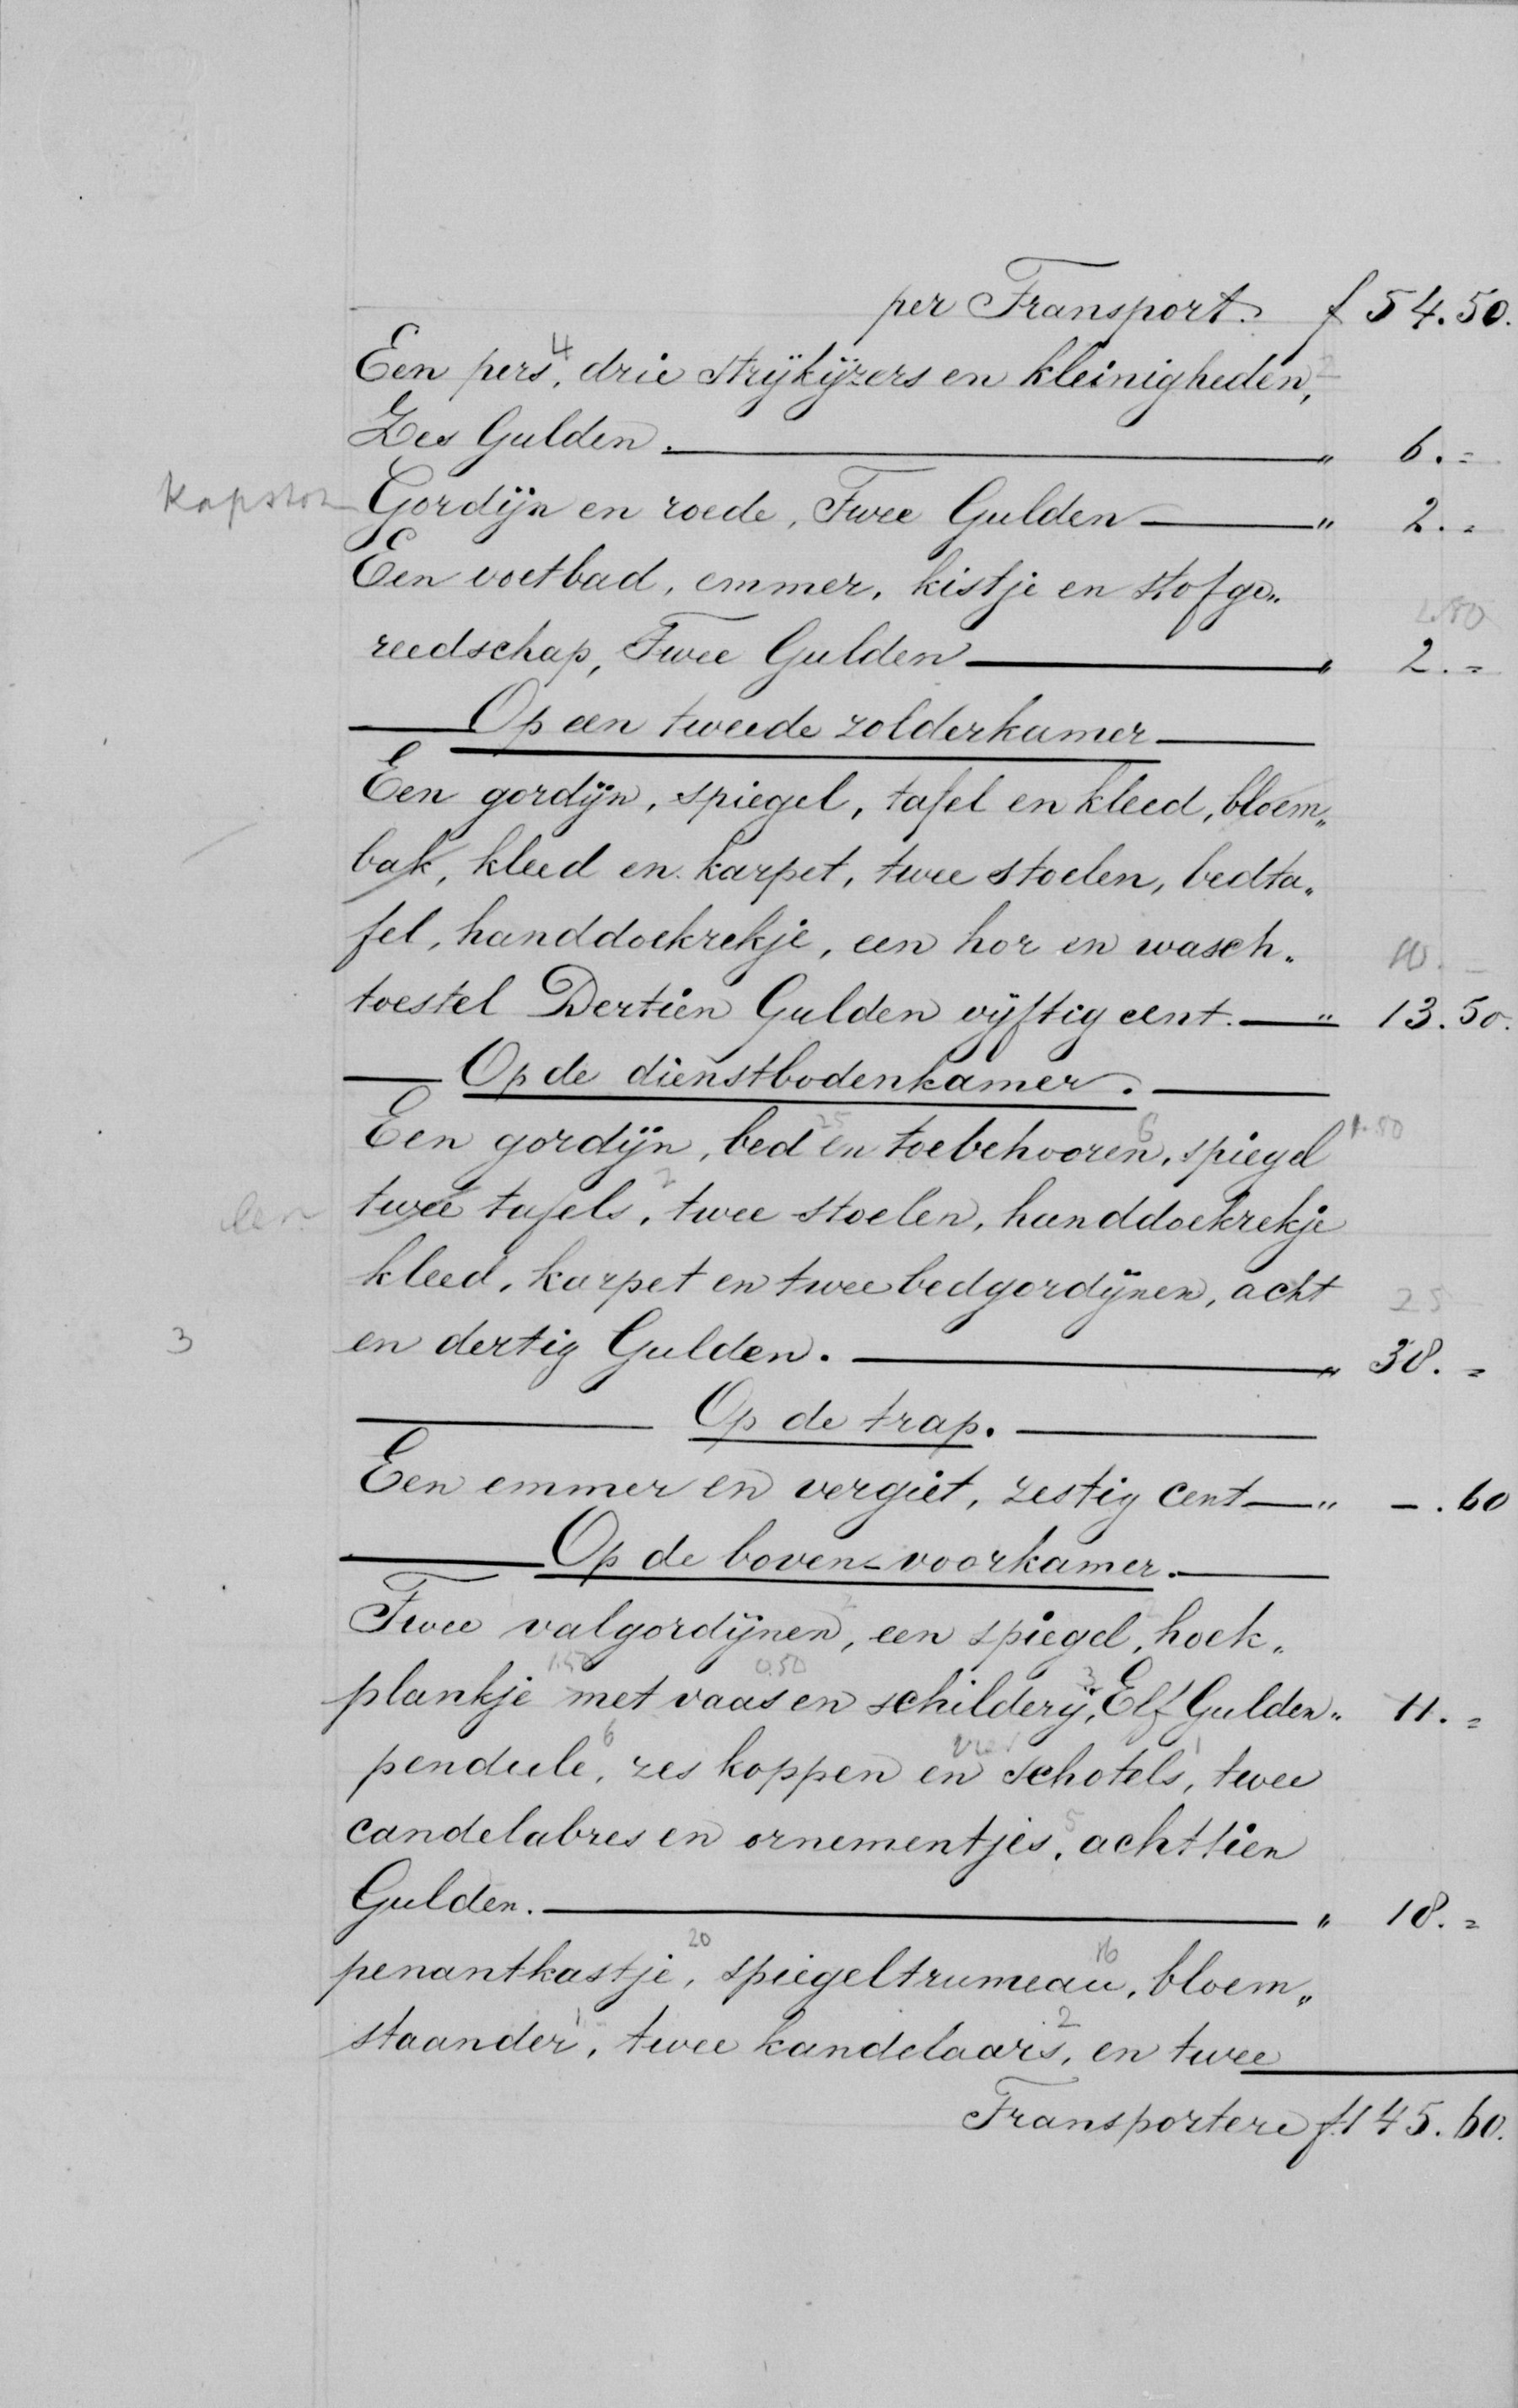 per Transport. f 54.50.
Een pers, 4 drie strijkijzers en kleinigheden, 2
Zes Gulden. „ 6.=
Kapstok Gordijn en roede, Twee Gulden „ 2.=
Een voetbad, emmer, kistje en stofge„
reedschap, Twee Gulden „ 2.=
Op een tweede zolderkamer
Een gordijn, spiegel, tafel en kleed, bloem„
bak, kleed en karpet, twee stoelen, bedta„
fel, handdoekrekje, een hor en wasch„ 10.-
toestel Dertien Gulden vijftig cent. „ 13.50.
Op de dienstbodenkamer.
Een gordijn, bed 25 en toebehooren, 6 spiegel 1.50
een twee tafels, 2 twee stoelen, handdoekrekje
kleed, karpet en twee bedgordijnen, acht 25
3 en dertig Gulden. „ 38.=
Op de trap.
Een emmer en vergiet, zestig Cent „ -.60
Op de boven-voorkamer.
Twee valgordijnen, 2 een spiegel, hoek„
plankje 1.50 met vaas 0.50 en schilderij, 3 Elf Gulden „ 11.=
pendule, 6 zes koppen en vier schotels, 1 twee
candelabres en ornementjes, 5 achttien
Gulden. „ 18.=
penantkastje, 20 spiegeltrumeau, 16 bloem„
staander, 1 twee kandelaars, 2 en twee
Transportere f 145.60.